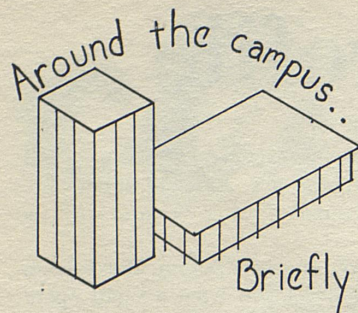 Around the campus..
Briefly